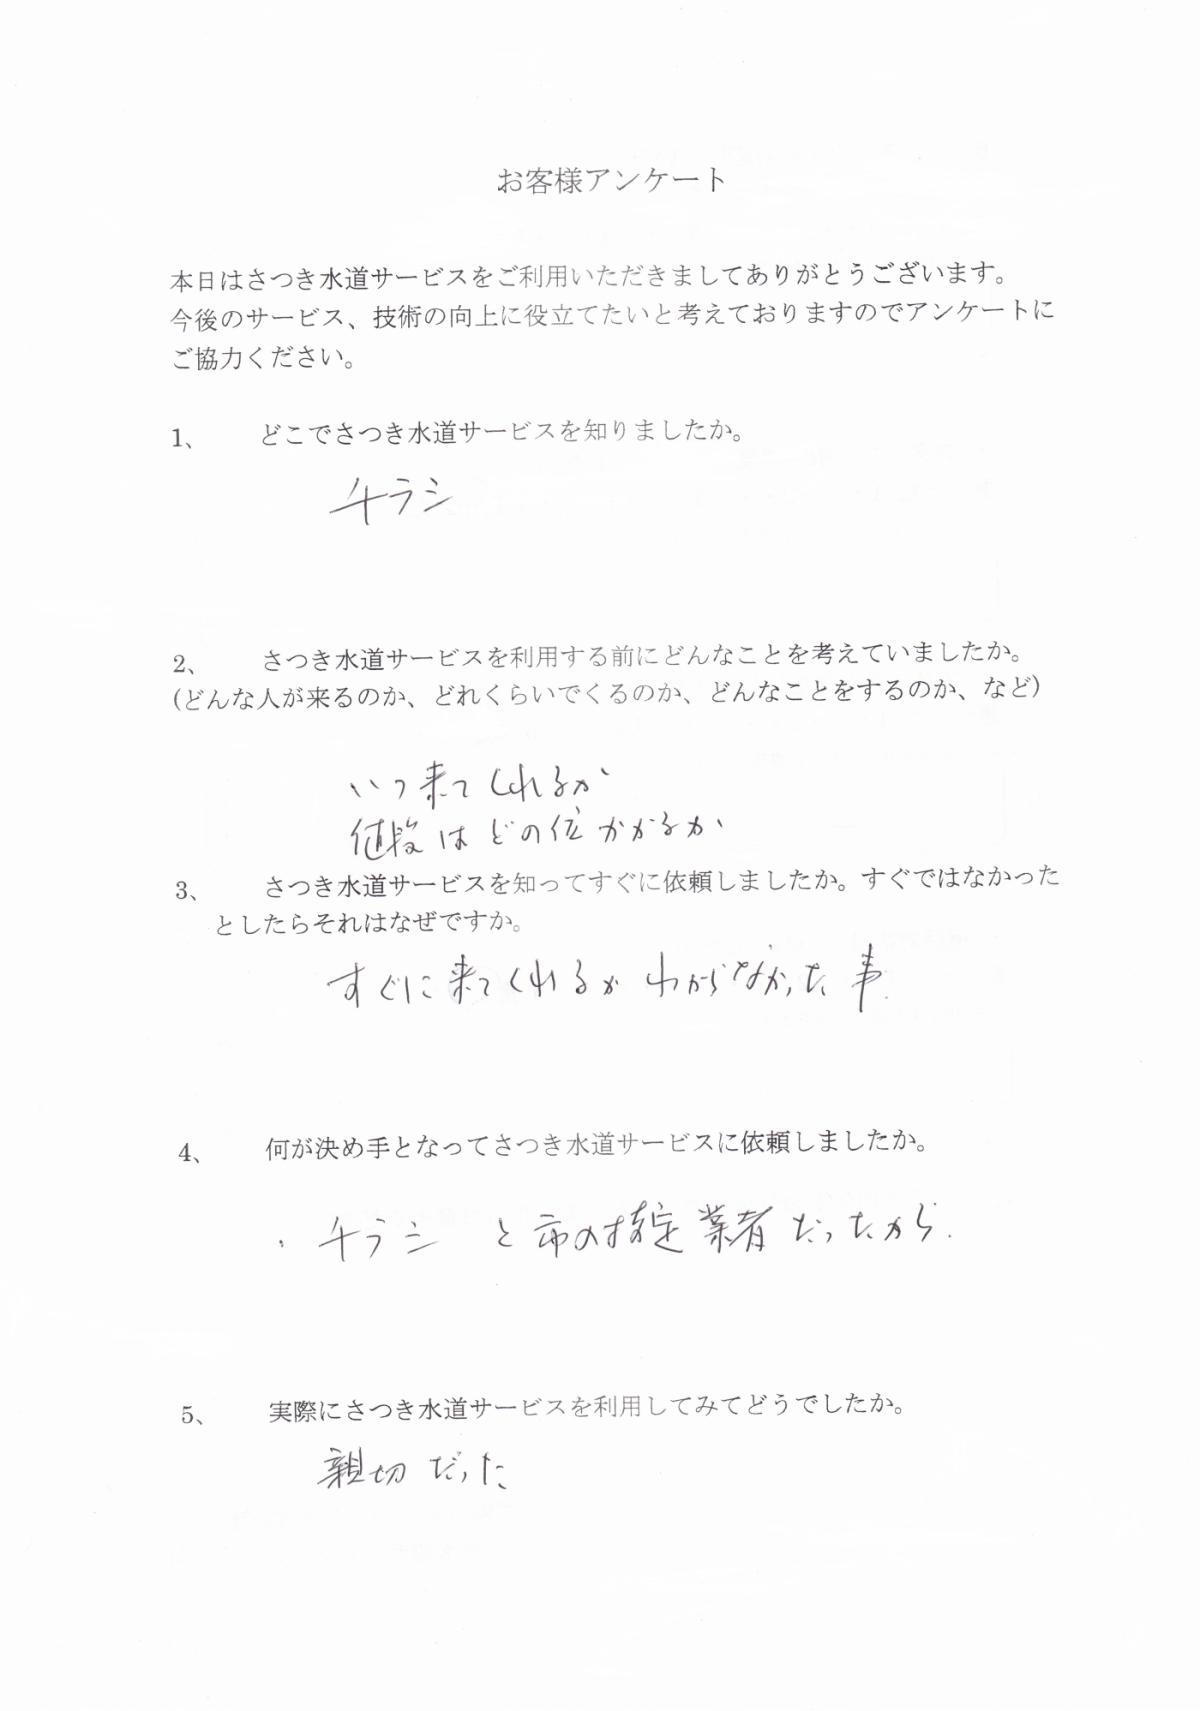 お客様アンケート
本日はさつき水道サービスをご利用いただきましてありがとうございます。
今後のサービス、技術の向上に役立てたいと考えておりますのでアンケートに
ご協力ください。
1、 どこでさつき水道サービスを知りましたか。
チラシ
2、 さつき水道サービスを利用する前にどんなことを考えていましたか。
(どんな人が来るのか、どれくらいでくるのか、どんなことをするのか、など)
いつ来てくれるか
値段はどの位かかるか
3、 さつき水道サービスを知ってすぐに依頼しましたか。すぐではなかった
としたらそれはなぜですか。
すぐに来てくれるかわからなかった事.
4、 何が決め手となってさつき水道サービスに依頼しましたか。
・チラシ と市の指定業者だったから.
5、 実際にさつき水道サービスを利用してみてどうでしたか。
親切だった